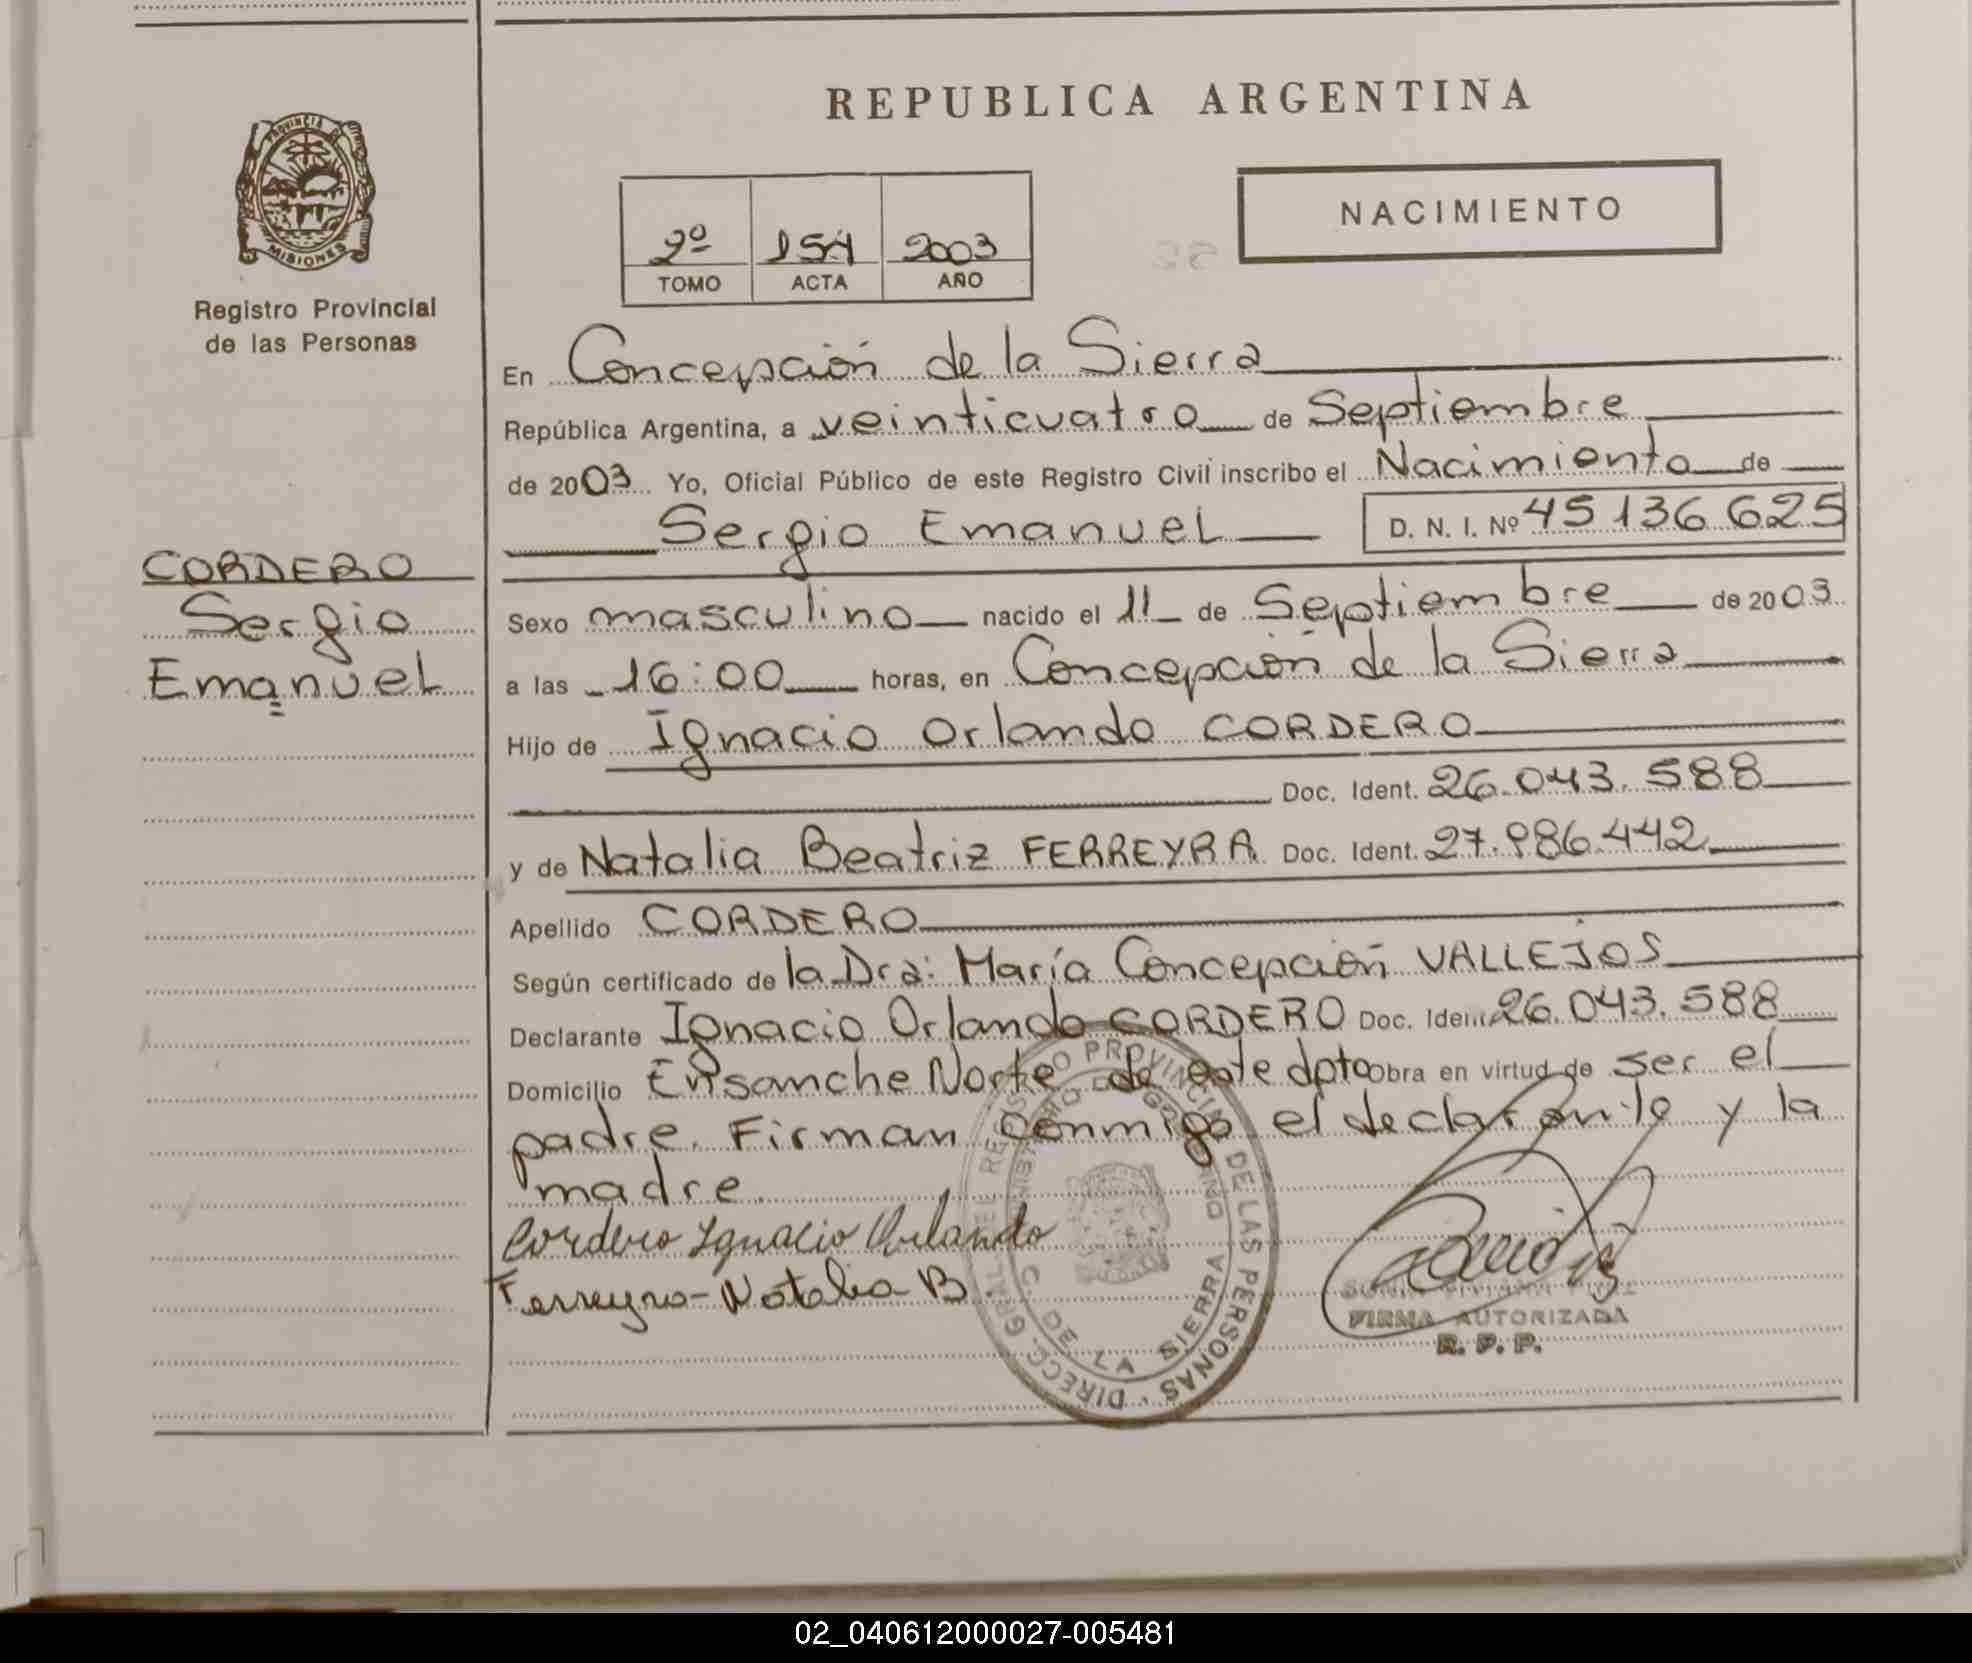 REPUBLICA ARGENTINA
PROVINCIA DE MISIONES
NACIMIENTO
2º 154 2003
TOMO ACTA AÑO
Registro Provincial
de las Personas
En Concepción de la Sierra
República Argentina, a veinticuatro de Septiembre
de 2003 Yo, Oficial Público de este Registro Civil inscribo el Nacimiento de
Sergio Emanuel D. N. I. Nº 45136625
CORDERO
Sergio
Emanuel
Sexo masculino nacido el 11 de Septiembre de 2003
a las 16:00 horas, en Concepción de la Sierra
Hijo de Ignacio Orlando CORDERO
Doc. Ident. 26.043.588
y de Natalia Beatriz FERREYRA Doc. Ident. 27.986.442
Apellido CORDERO
Según certificado de la Dra: María Concepción VALLEJOS
Declarante Ignacio Orlando CORDERO Doc. Ident. 26.043.588
Domicilio Ensanche Norte de este dpto obra en virtud de ser el
padre. Firman conmigo el declarante y la
madre.
Cordero Ignacio Orlando
Ferreyra Natalia B
DIRECC. GRAL. DEL REGISTRO PROVINCIAL DE LAS PERSONAS
C. DE LA SIERRA
FIRMA AUTORIZADA
R. P. P.
02_040612000027-005481